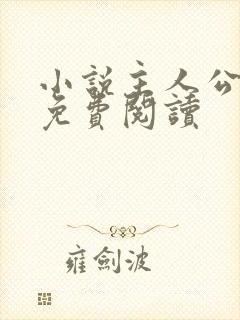 小說主人公
免費閱讀
雍劍波